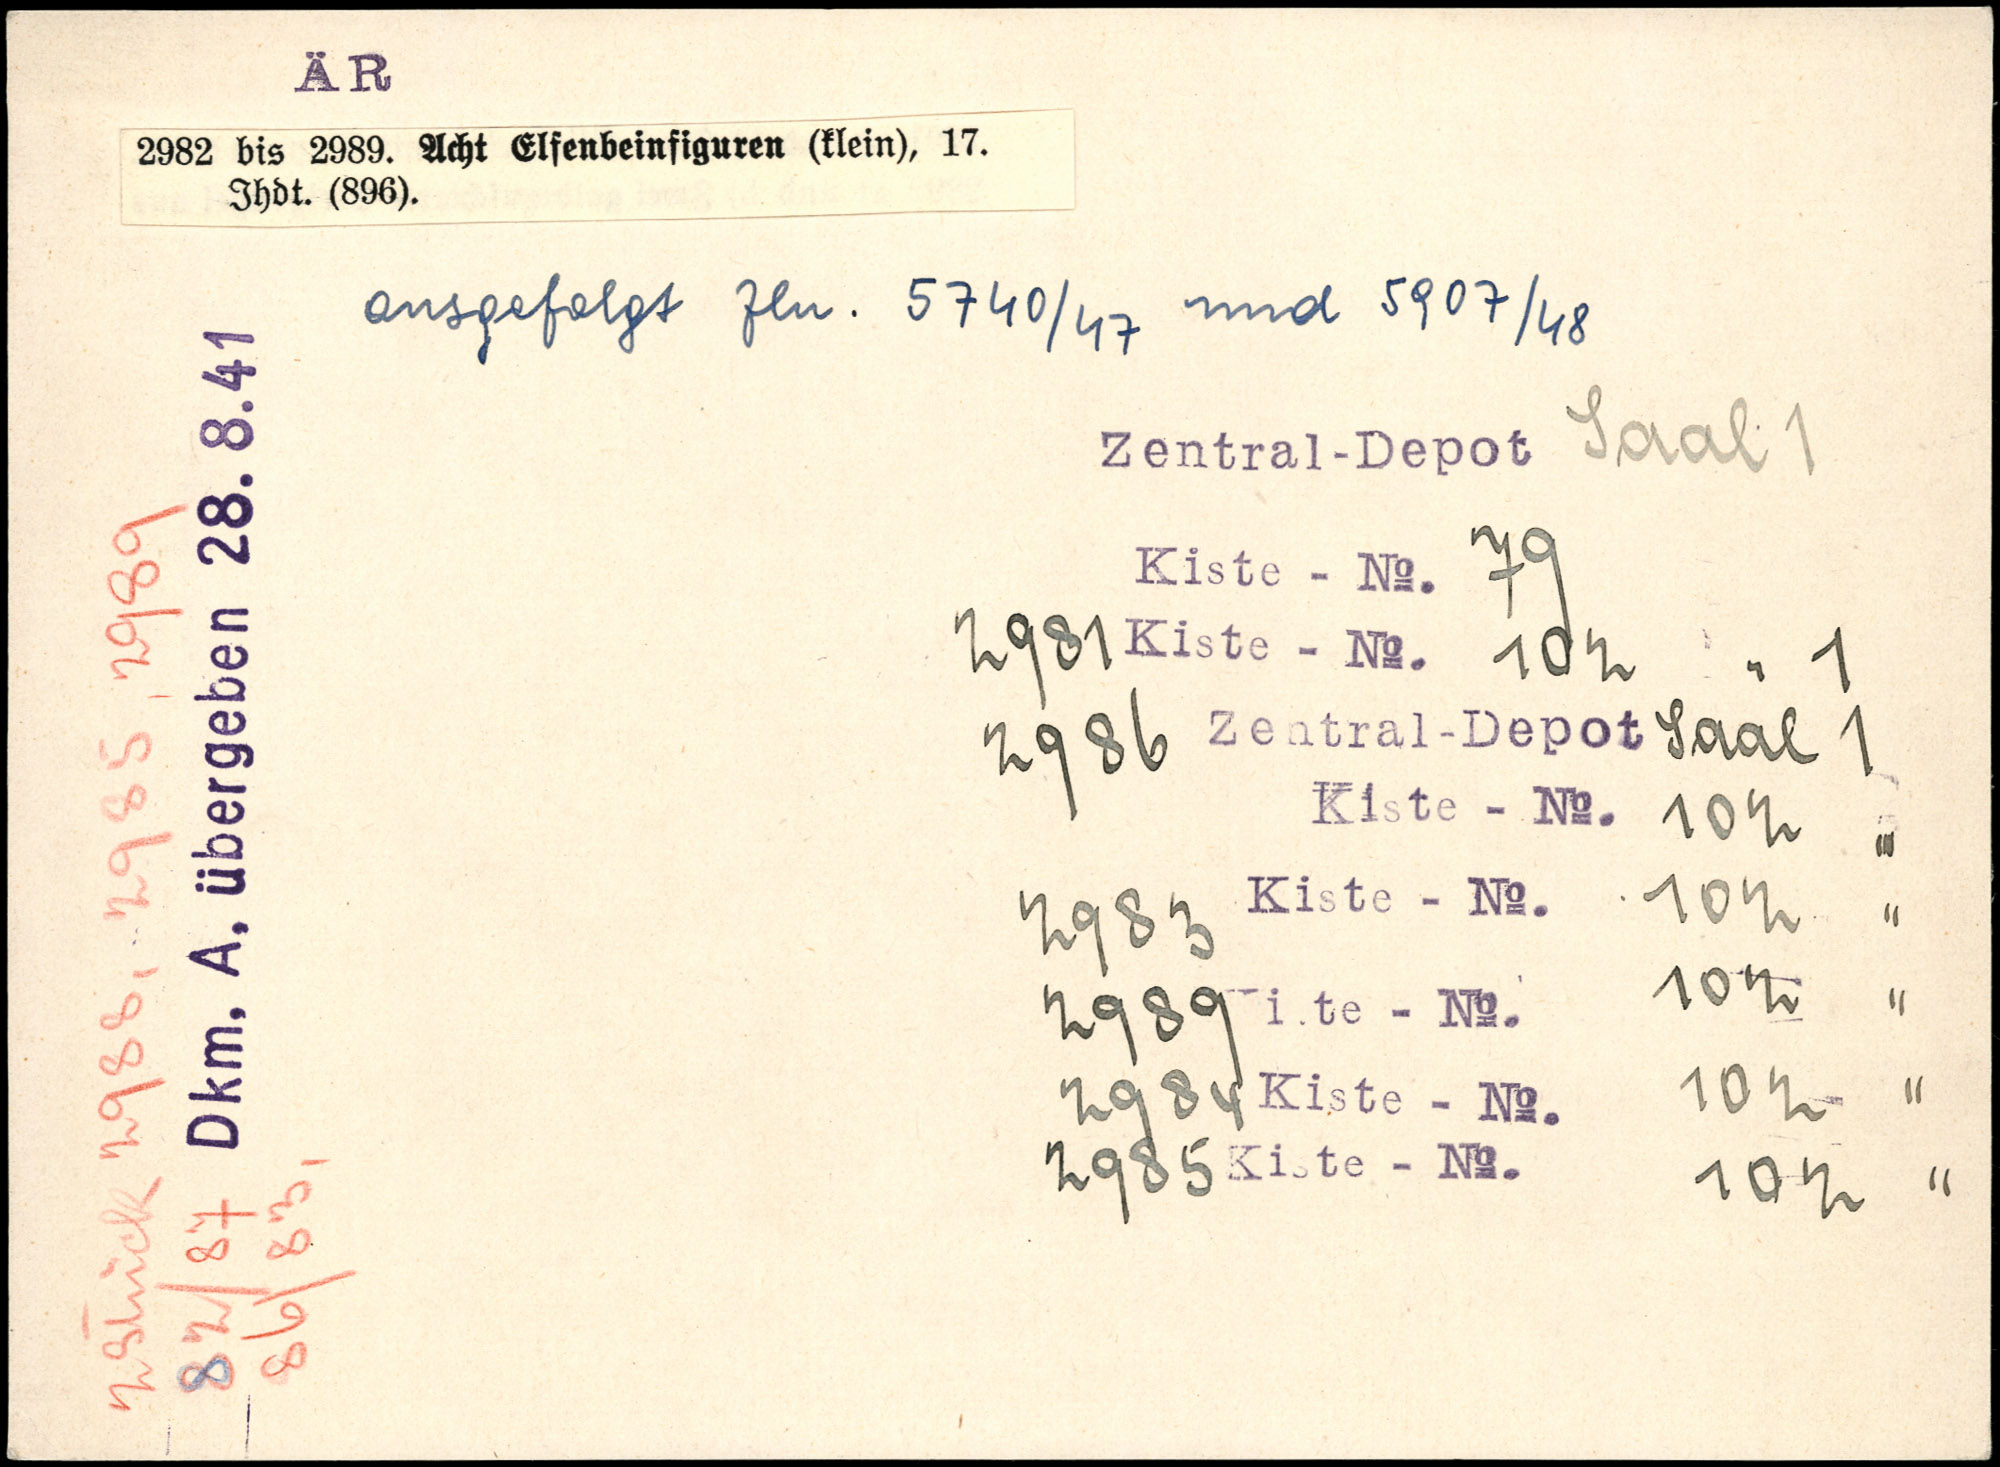 ÄR
2982 bis 2989. Acht Elfenbeinfiguren (klein), 17.
Jhdt. (896).
ausgefolgt Zln. 5740/47 und 5907/48
Zentral-Depot Saal 1
Kiste - No. 79
2981 Kiste - No. 102 " 1
2986 Zentral-Depot Saal 1
Kiste - No. 102 "
2983 Kiste - No. 102 "
2989 Kiste - No. 102 "
2984 Kiste - No. 102 "
2985 Kiste - No. 102 "
Dkm. A. übergeben 28. 8. 41
2 Stück 2988, 2985, 2989
82/87
86/83,